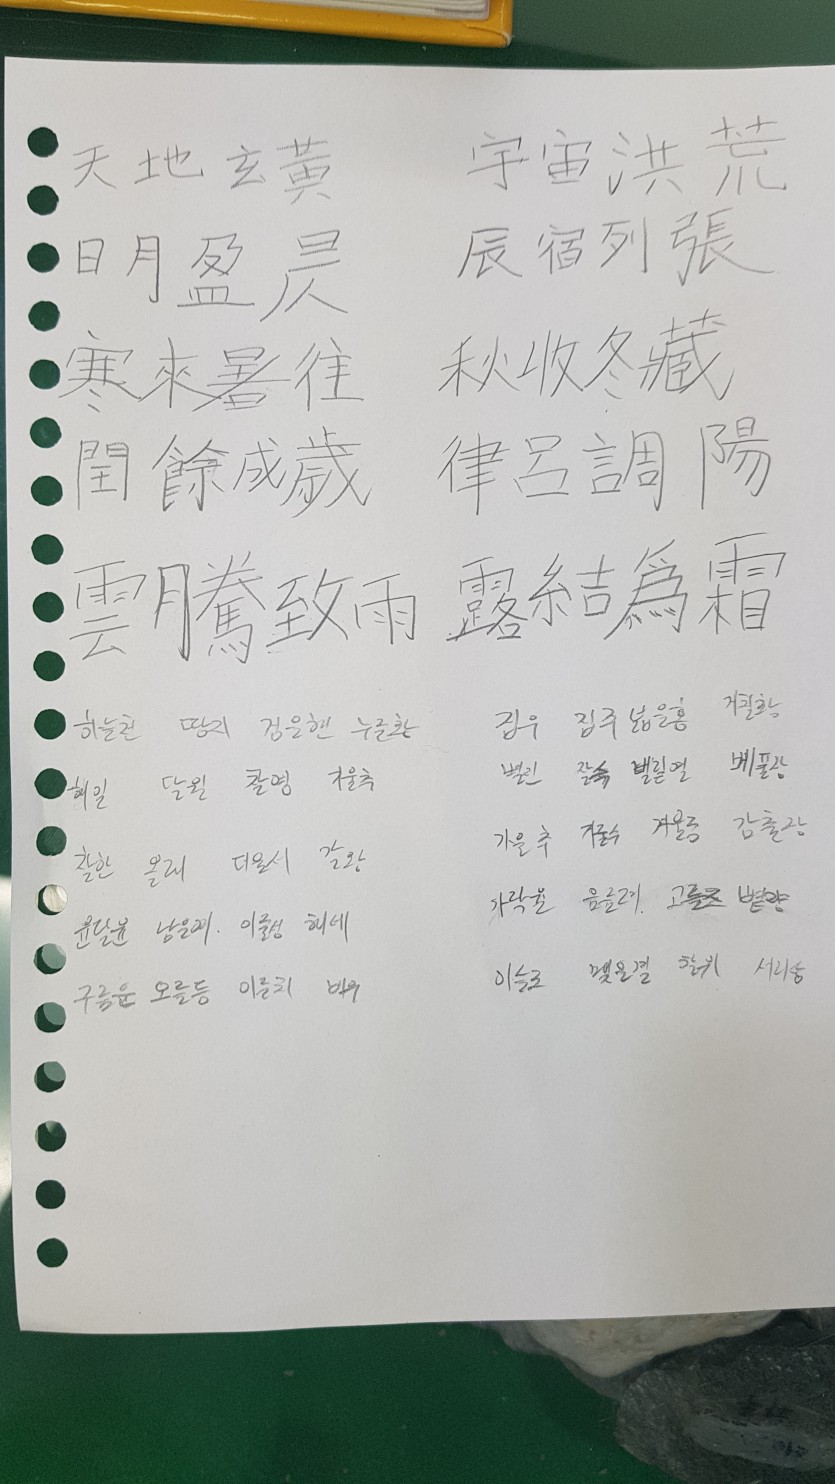 天地玄黃 宇宙洪荒
日月盈昃 辰宿列張
寒來暑往 秋收冬藏
閏餘成歲 律呂調陽
雲騰致雨 露結爲霜
하늘천 땅지 검을현 누를황 집우 집주 넓을홍 거칠황
해일 달월 찰영 기울측 별진 잘숙 벌릴열 베풀장
찰한 올래 더울서 갈왕 가을추 거둘수 겨울동 감출장
윤달윤 남을여 이룰성 해세 가락율 음률려 고를조 볕양
구름운 오를등 이를치 비우 이슬로 맺을결 할위 서리상